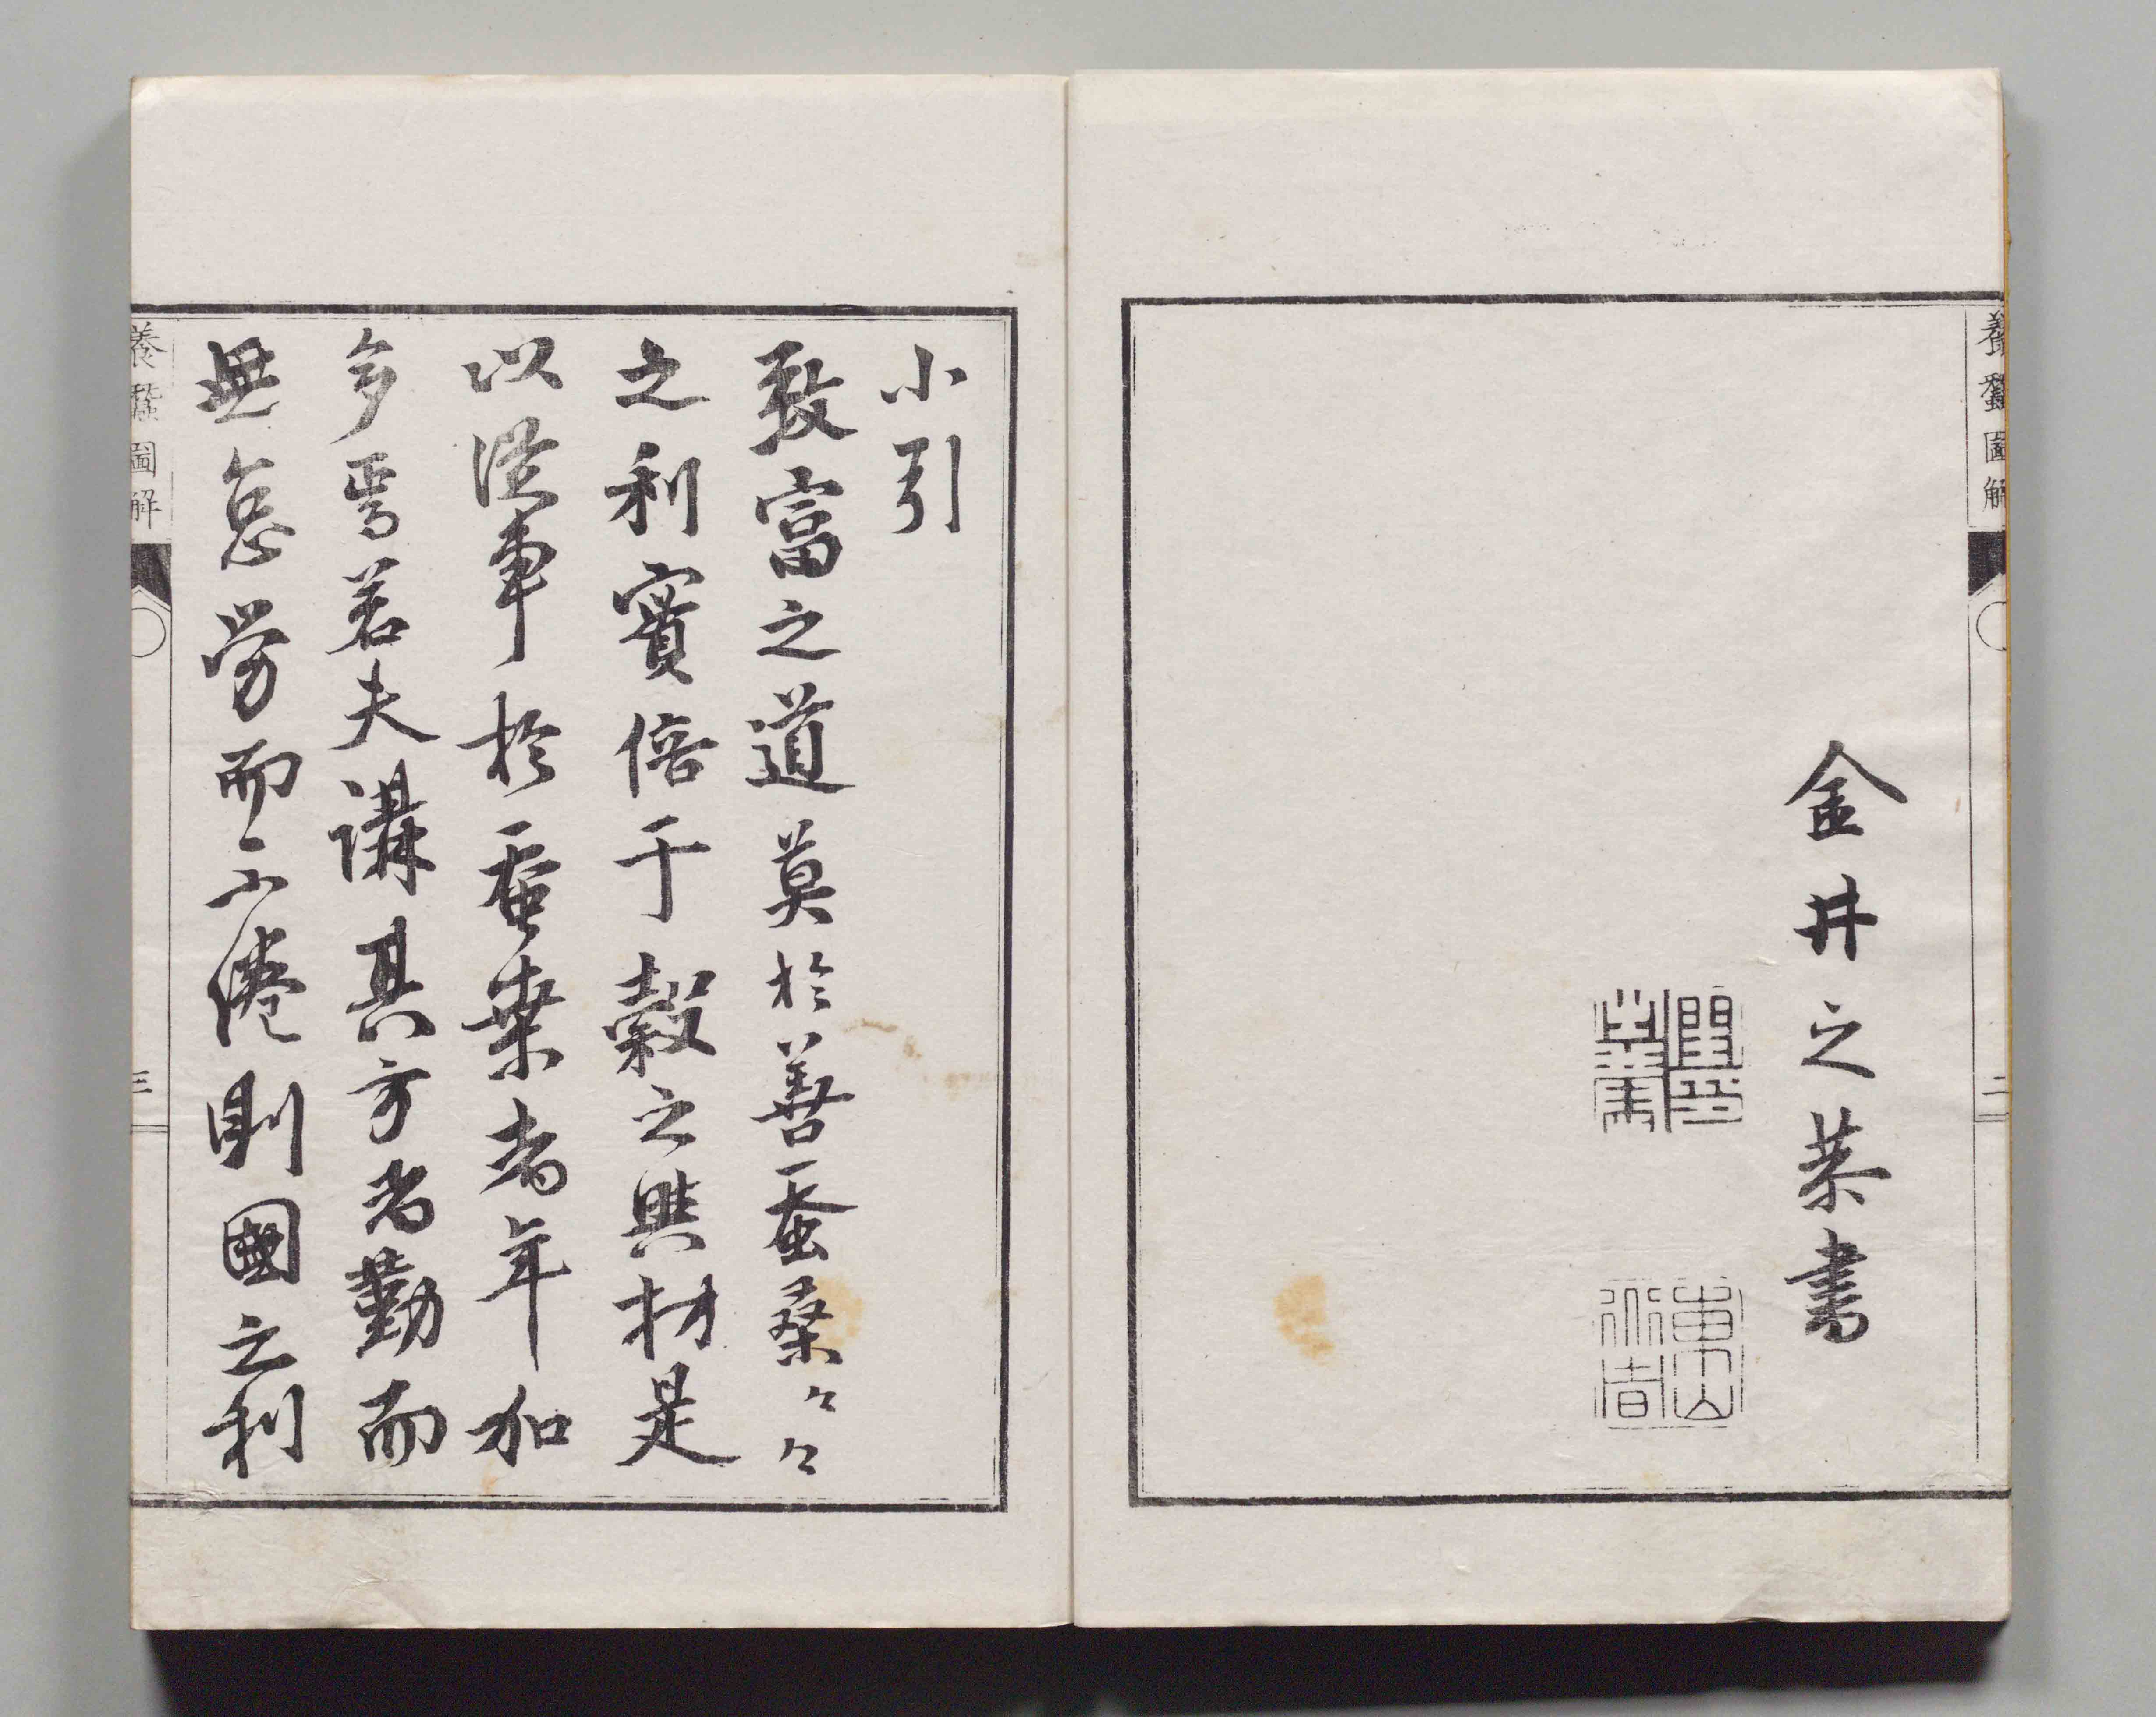 養蠶圖解
二
金井之恭書
小引
致富之道莫於善蚕桑々々
之利實倍于穀之與材是
以從事於蚕桒者年加
多焉若夫講其方者勤而
無怠勞而不倦則國之利
養蠶圖解
三